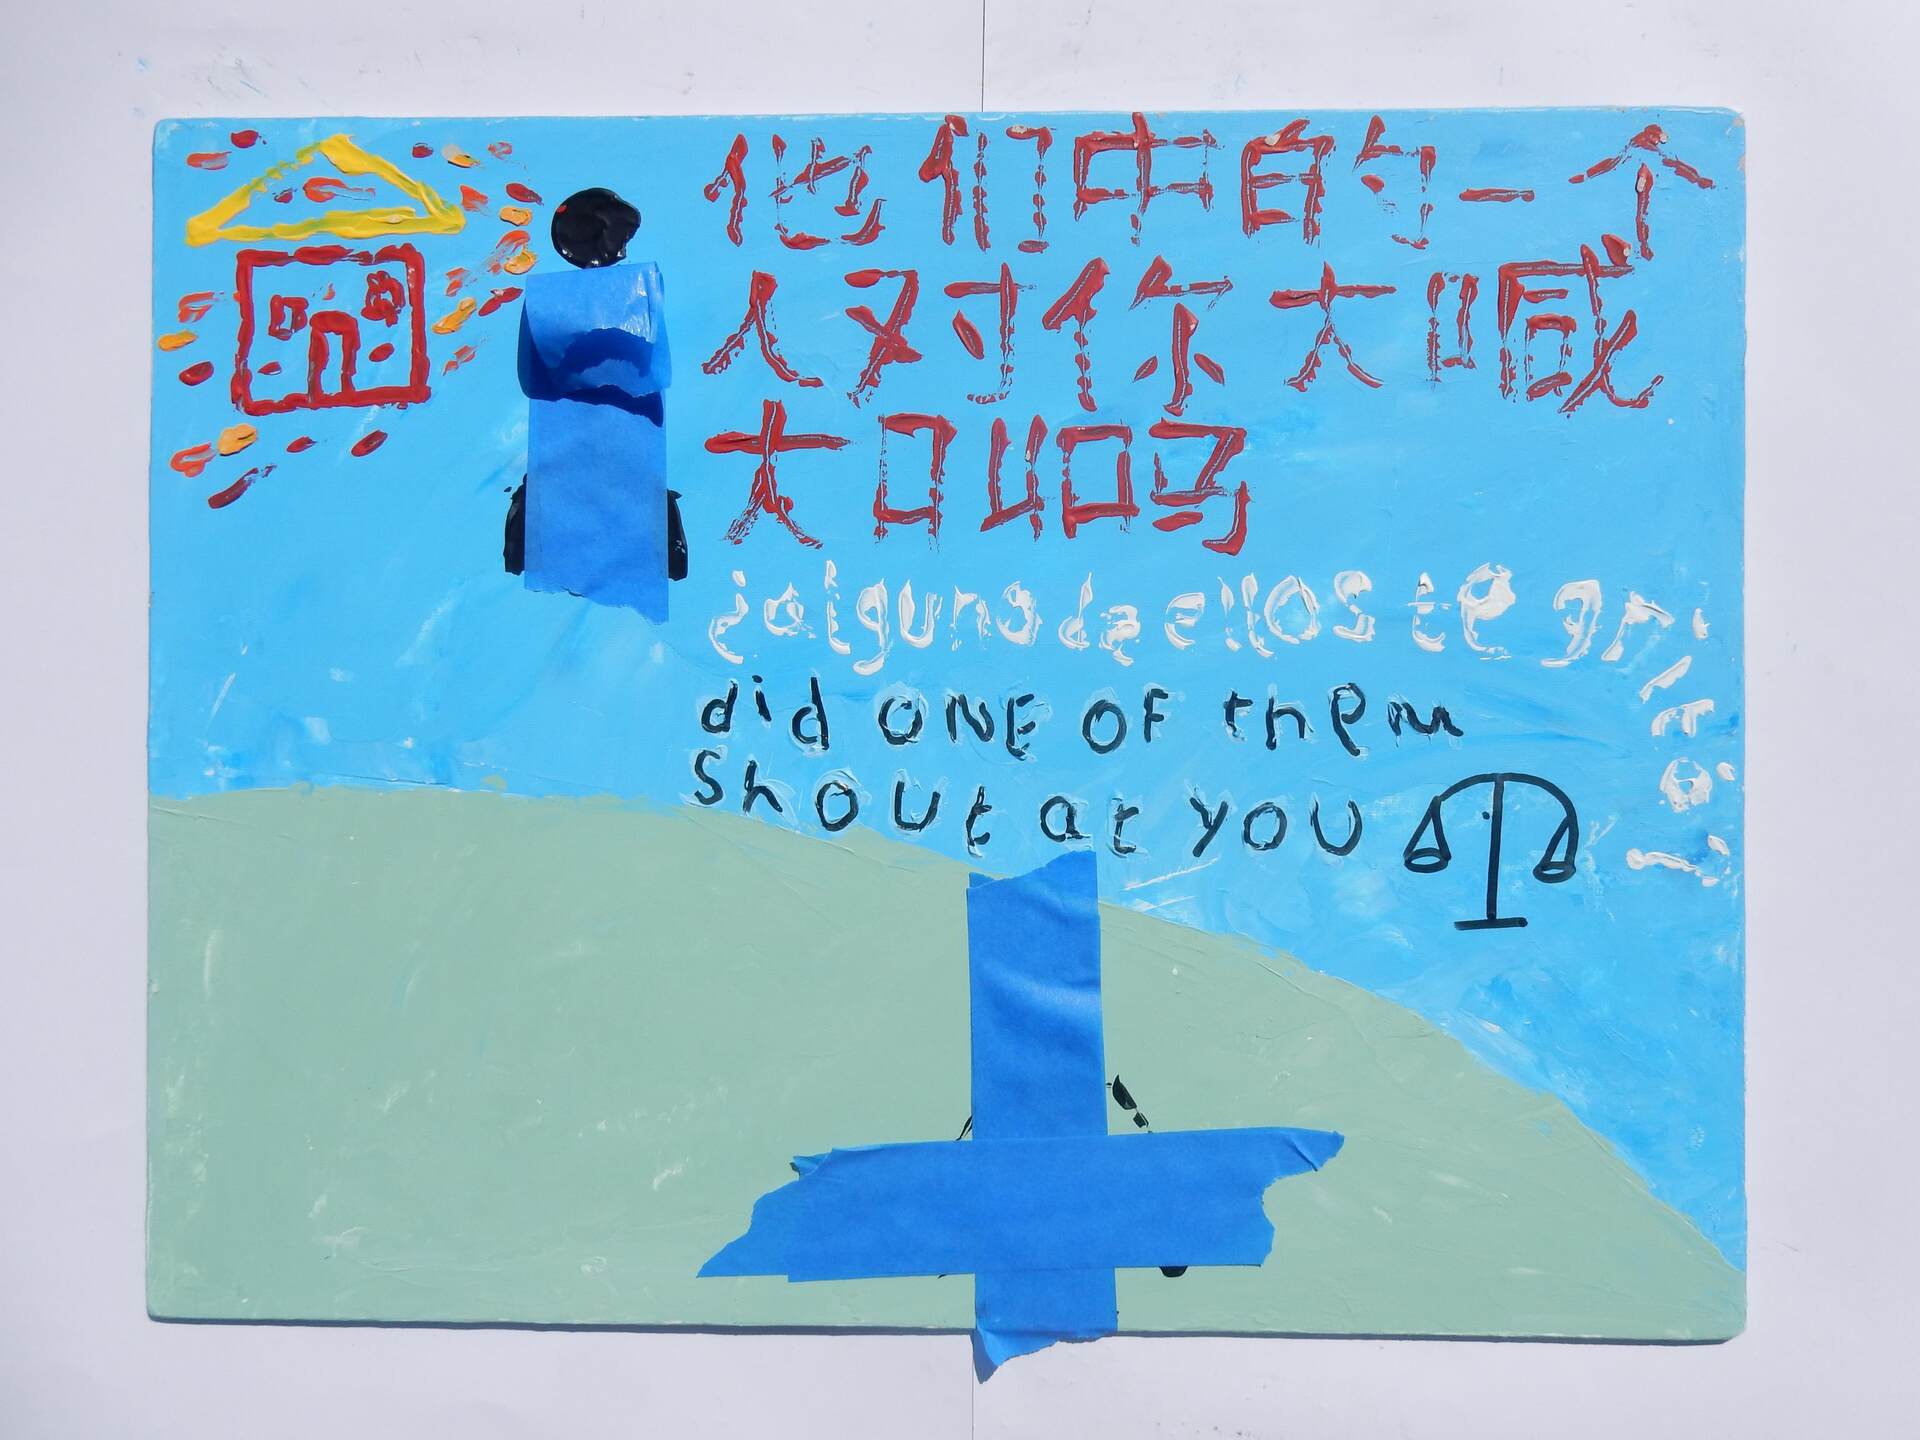 他们中的一个
人对你大喊
大叫吗
¿alguno de ellos te gritó?
did ONE OF them
Shout at you